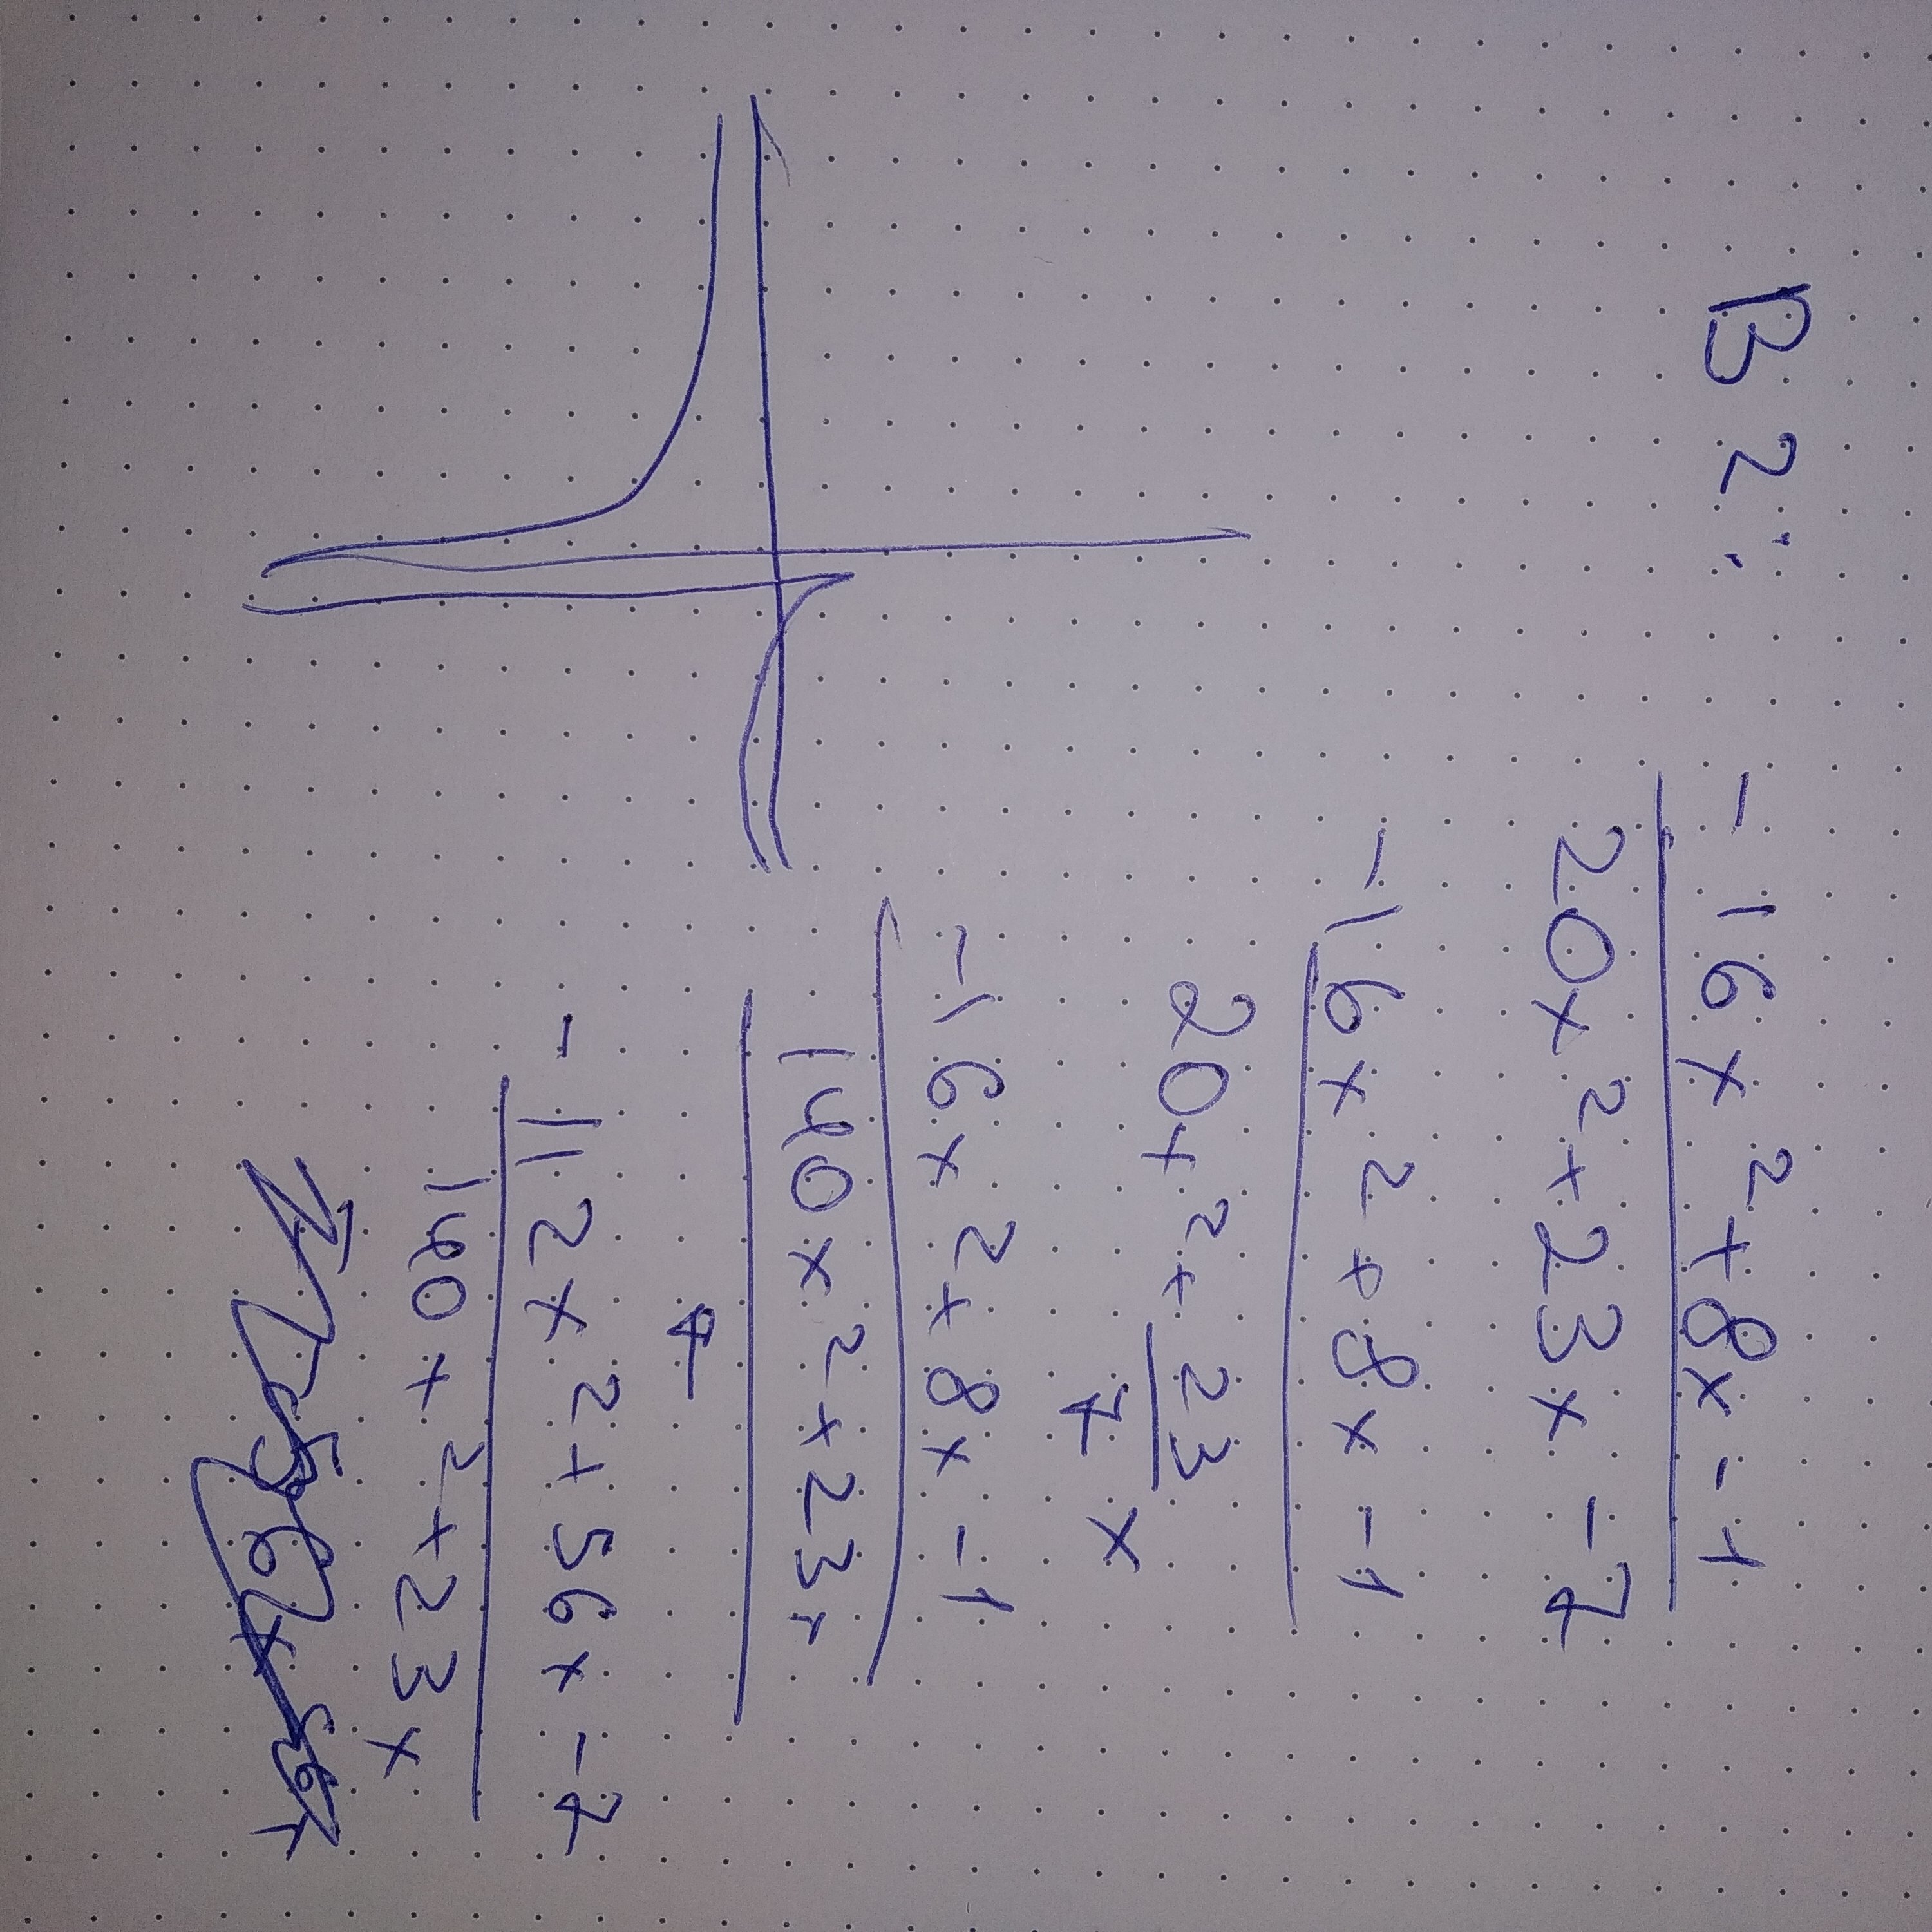 B 2:
-16x²+8x-1
20x²+23x-7
-16x²+8x-1
20x²+23
7 x
-16x²+8x-1
140x²+23x
7
-112x²+56x-7
140x²+23x